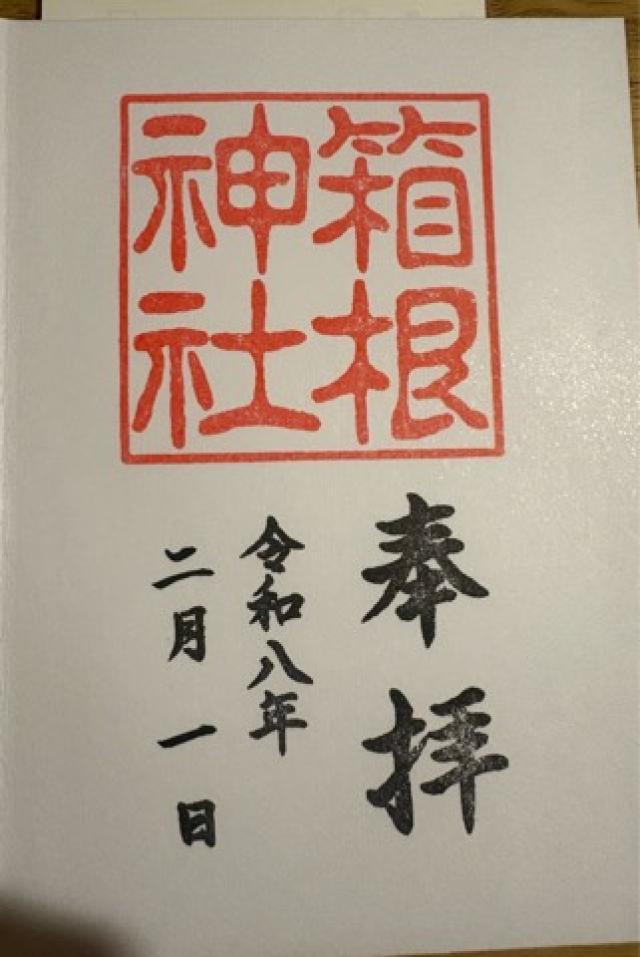 箱根
神社
奉拝
令和八年
二月一日